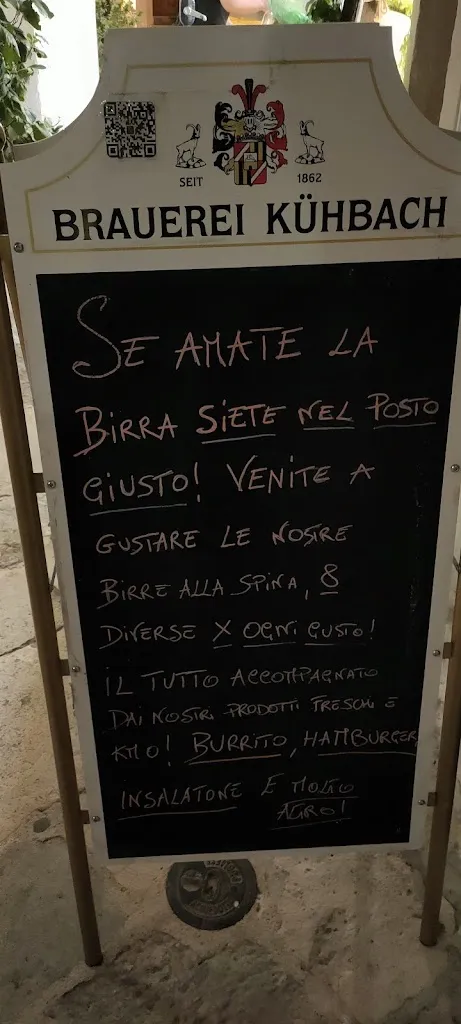 SEIT 1862
BRAUEREI KÜHBACH
SE AMATE LA
BIRRA SIETE NEL POSTO
GIUSTO! VENITE A
GUSTARE LE NOSTRE
BIRRE ALLA SPINA, 8
DIVERSE X OGNI GUSTO!
IL TUTTO ACCOMPAGNATO
DAI NOSTRI PRODOTTI FRESCHI E
KM0! BURRITO, HAMBURGER,
INSALATONE E MOLTO
ALTRO!